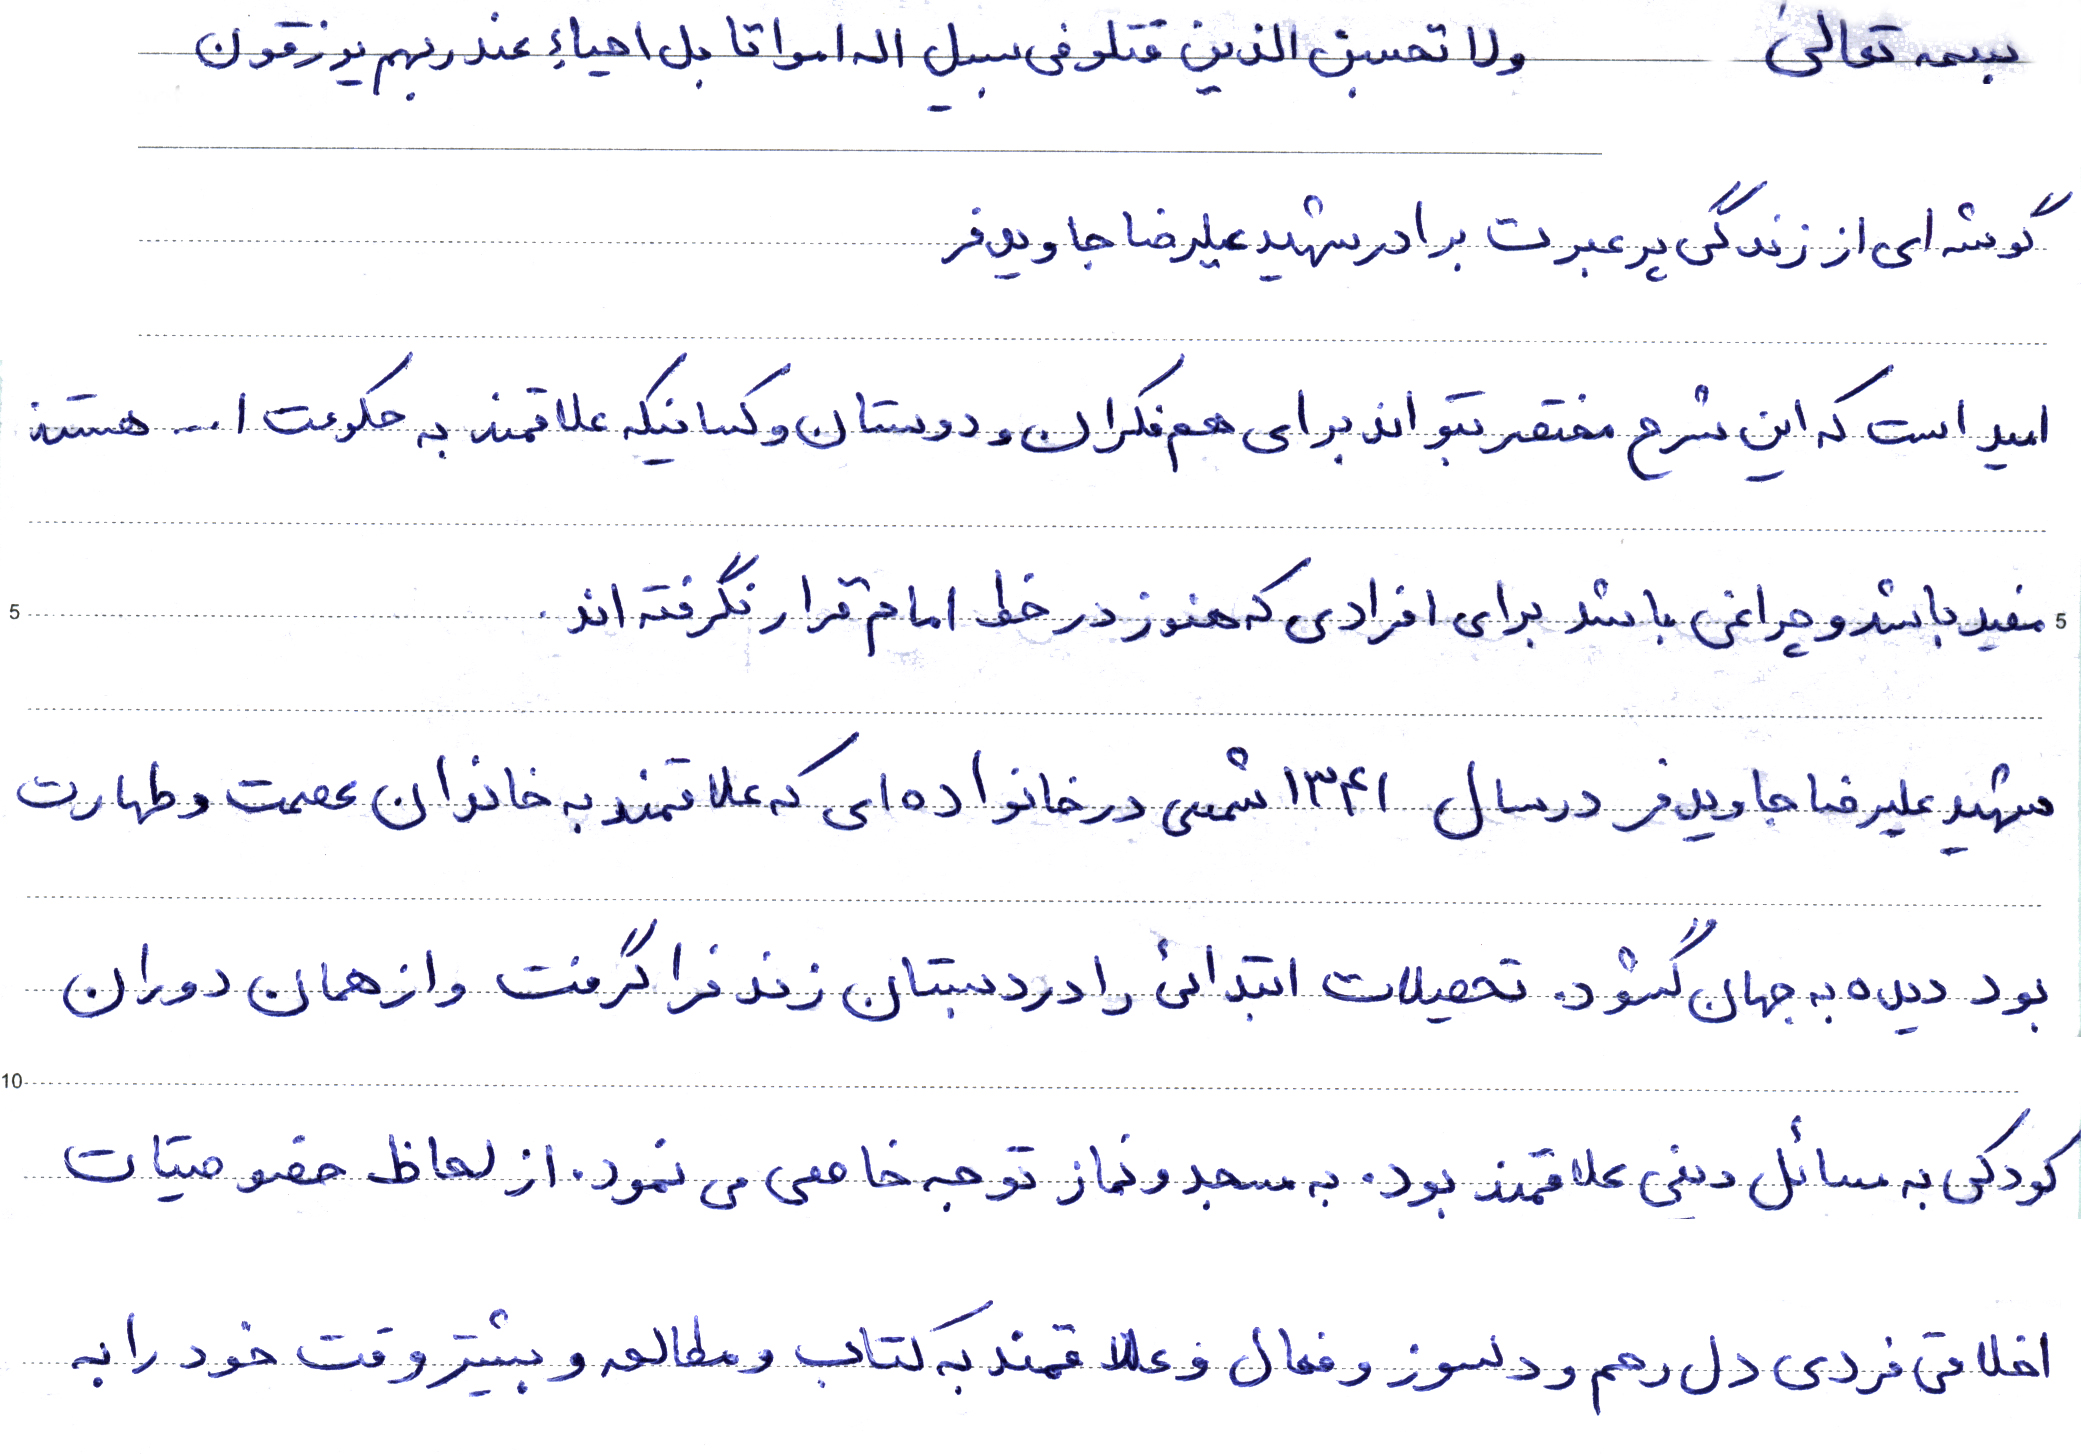 بسمه تعالی ولا تحسبن الذین قتلو فی سبیل اله امواتا بل احیاءٍ عند ربهم یوزقون
گوشه ای از زندگی پر عبرت برادر شهید علیرضا جاویدفر
امید است که این شرح مختصر بتواند برای هم فکران و دوستان و کسانیکه علاقمند به حکومت ا... هستند
5 مفید باشد و چراغی باشد برای افرادی که هنوز در خط امام قرار نگرفته اند. 5
شهید علیرضا جاویدفر در سال ۱۳۴۱ شمسی در خانواده ای که علاقمند به خاندان عصمت و طهارت
بود دیده به جهان گشود. تحصیلات ابتدائی را در دبستان زند فرا گرفت و از همان دوران
10
کودکی به مسائل دینی علاقمند بود. به مسجد و نماز توجه خاصی می نمود. از لحاظ خصوصیّات
اخلاقی فردی دل رحم و دلسوز و فعال و علاقمند به کتاب و مطالعه و بیشتر وقت خود را به